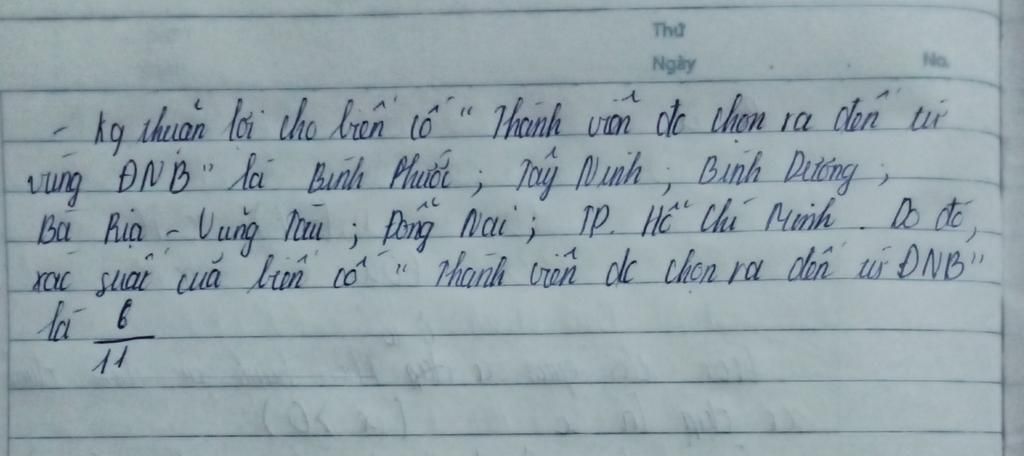 Thứ
Ngày No.
- Kq thuận lợi cho biến cố " Thành viên đc chọn ra đến từ
vùng ĐNB" là Bình Phước ; Tây Ninh ; Bình Dương ;
Bà Rịa - Vũng Tàu ; Đồng Nai ; TP. Hồ Chí Minh . Do đó,
xác suất của biến cố " Thành viên đc chọn ra đến từ ĐNB"
là 6
11